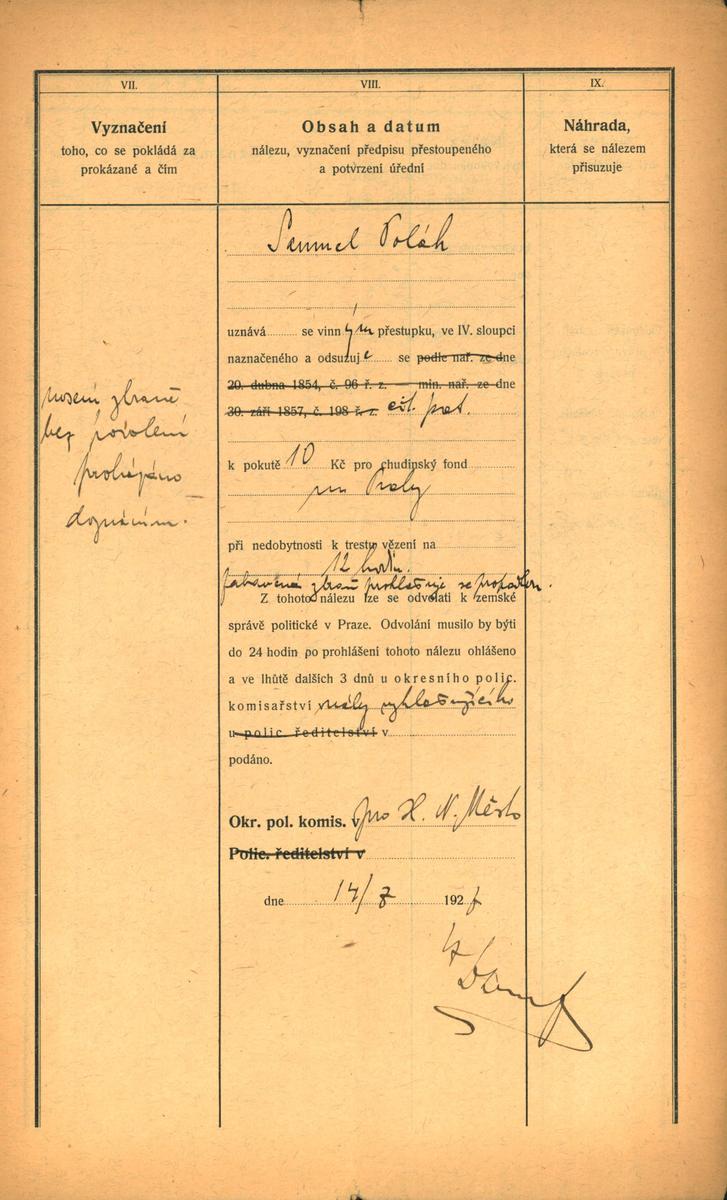 VII.
Vyznačení
toho, co se pokládá za
prokázané a čím
nosení zbraně
bez povolení
prokázáno
doznáním.
VIII.
Obsah a datum
nálezu, vyznačení předpisu přestoupeného
a potvrzení úřední
Samuel Polák
uznává se vinným přestupku, ve IV. sloupci
naznačeného a odsuzuje se podle nař. ze dne
20. dubna 1854, č. 96 ř. z. — min. nař. ze dne
30. září 1857, č. 198 ř. z. cit. pat.
k pokutě 10 Kč pro chudinský fond
m Prahy
při nedobytnosti k trestu vězení na
12 hodin.
zabavená zbraň prohlašuje se propadlou.
Z tohoto nálezu lze se odvolati k zemské
správě politické v Praze. Odvolání musilo by býti
do 24 hodin po prohlášení tohoto nálezu ohlášeno
a ve lhůtě dalších 3 dnů u okresního polic.
komisařství nález vyhlašujícího
u polic. ředitelství v
podáno.
Okr. pol. komis. v pro H. N. Město
Polic. ředitelství v
dne 14/7 1927
IX.
Náhrada,
která se nálezem
přisuzuje